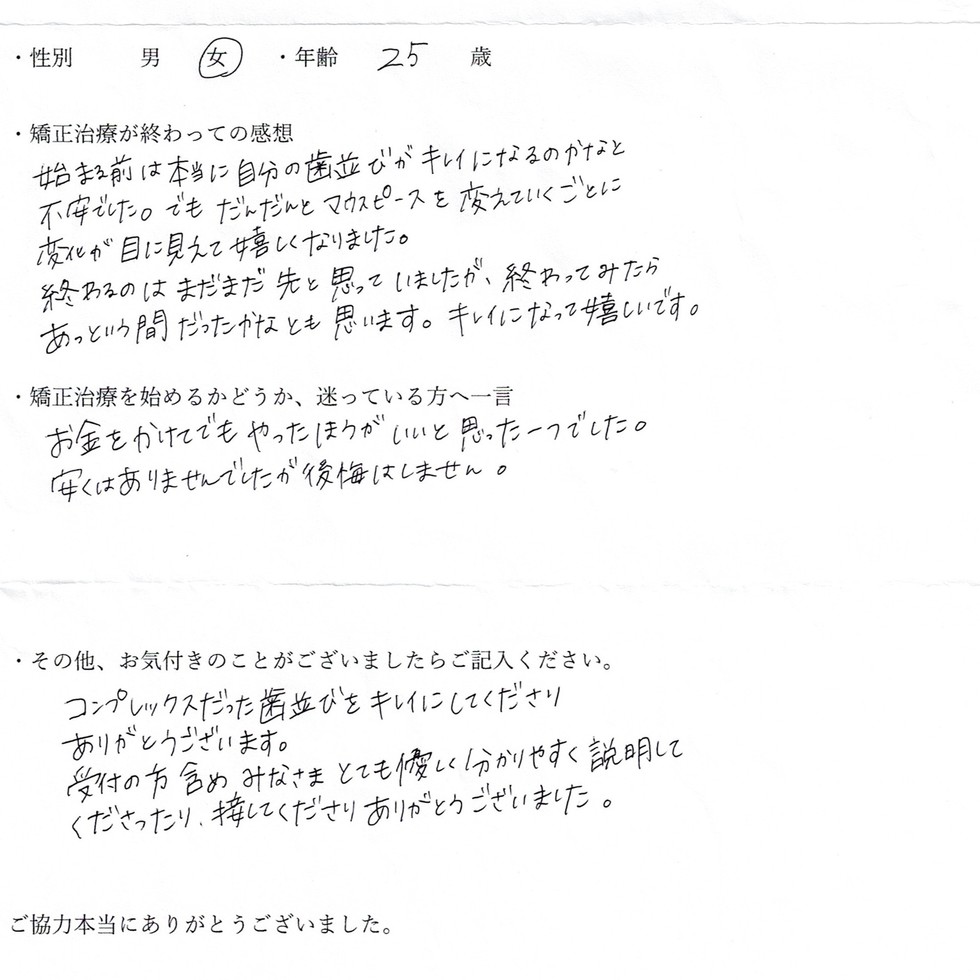 ・性別 男 女 ・年齢 25 歳
・矯正治療が終わっての感想
始まる前は本当に自分の歯並びがキレイになるのかなと
不安でした。でもだんだんとマウスピースを変えていくごとに
変化が目に見えて嬉しくなりました。
終わるのはまだまだ先と思っていましたが、終わってみたら
あっという間だったかなとも思います。キレイになって嬉しいです。
・矯正治療を始めるかどうか、迷っている方へ一言
お金をかけてでもやったほうがいいと思った一つでした。
安くはありませんでしたが後悔はしません。
・その他、お気付きのことがございましたらご記入ください。
コンプレックスだった歯並びをキレイにしてくださり
ありがとうございます。
受付の方含めみなさまとても優しく分かりやすく説明して
くださったり、接してくださりありがとうございました。
ご協力本当にありがとうございました。